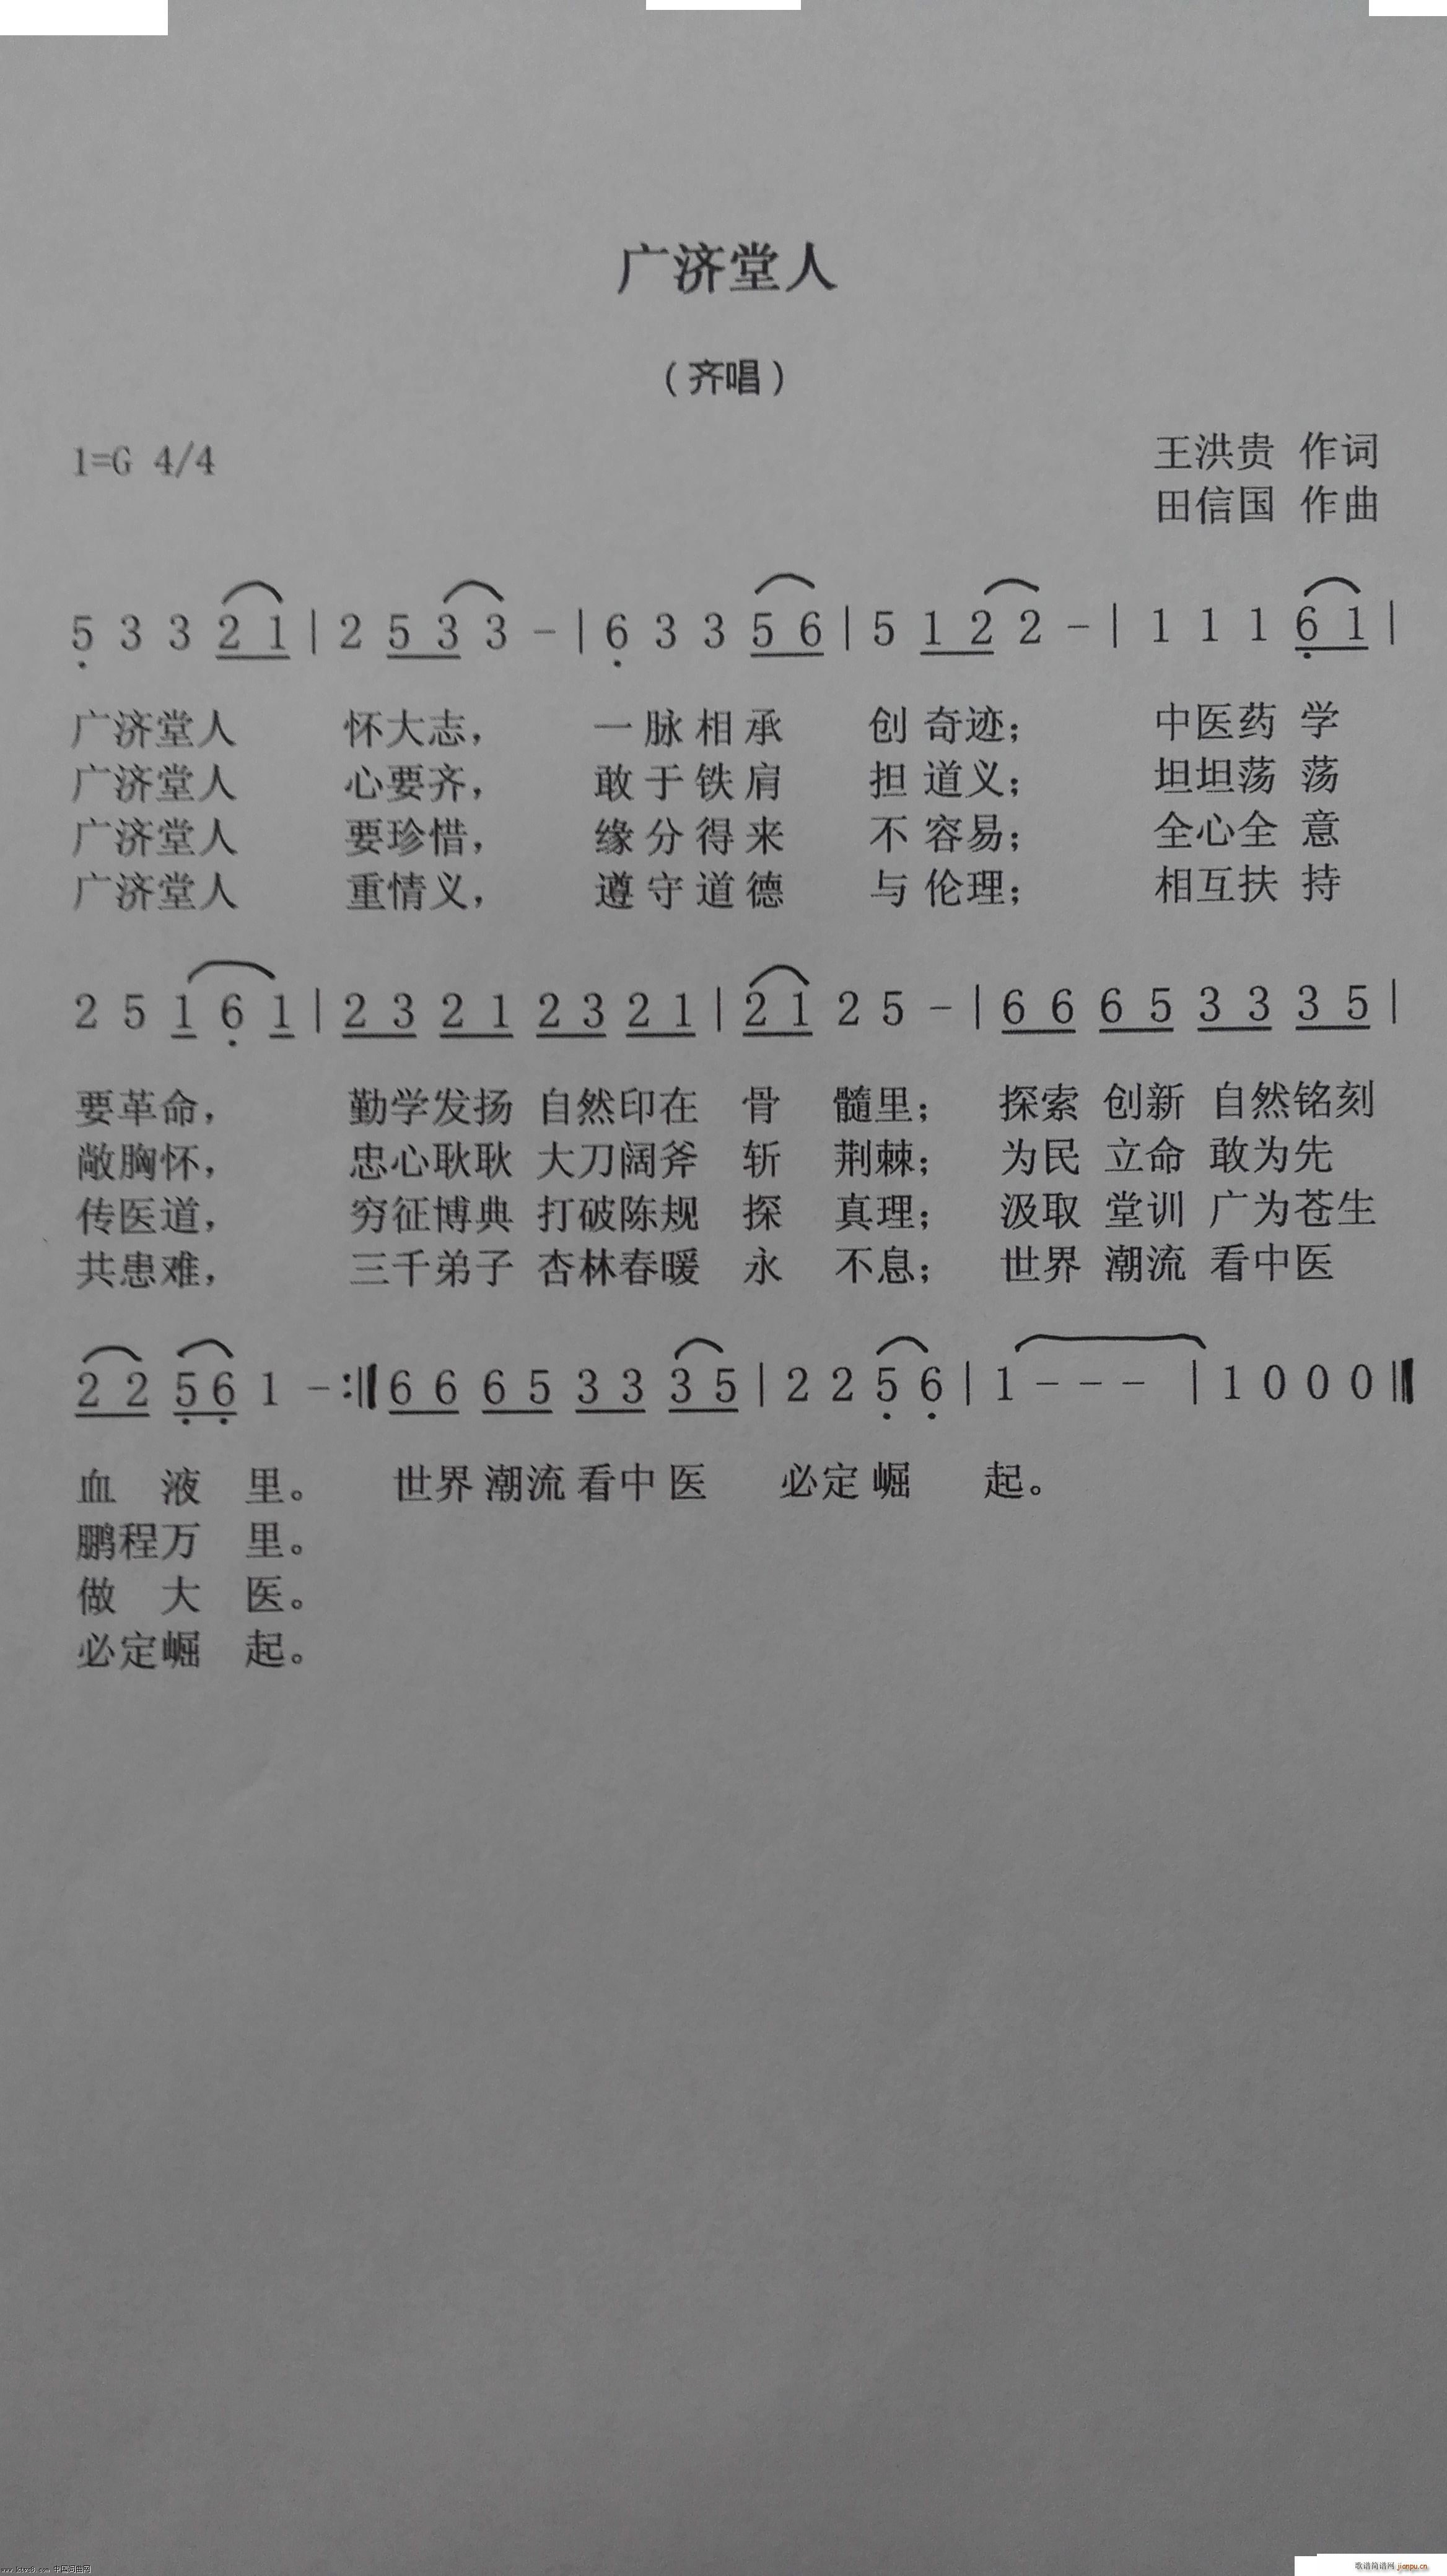 广济堂人
（齐唱）
1=G 4/4
王洪贵 作词
田信国 作曲
5 3 3 2 1 | 2 5 3 3 － | 6 3 3 5 6 | 5 1 2 2 － | 1 1 1 6 1 |
广济堂人 怀大志， 一脉相承 创奇迹； 中医药学
广济堂人 心要齐， 敢于铁肩 担道义； 坦坦荡荡
广济堂人 要珍惜， 缘分得来 不容易； 全心全意
广济堂人 重情义， 遵守道德 与伦理； 相互扶持
2 5 1 6 1 | 2 3 2 1 2 3 2 1 | 2 1 2 5 － | 6 6 6 5 3 3 3 5 |
要革命， 勤学发扬 自然印在 骨 髓里； 探索 创新 自然铭刻
敞胸怀， 忠心耿耿 大刀阔斧 斩 荆棘； 为民 立命 敢为先
传医道， 穷征博典 打破陈规 探 真理； 汲取 堂训 广为苍生
共患难， 三千弟子 杏林春暖 永 不息； 世界 潮流 看中医
2 2 5 6 1 － :‖ 6 6 6 5 3 3 3 5 | 2 2 5 6 | 1 － － － | 1 0 0 0 ‖
血 液 里。 世界 潮流 看中 医 必定 崛 起。
鹏程万 里。
做 大 医。
必定崛 起。
歌谱简谱网 jianpu.cn